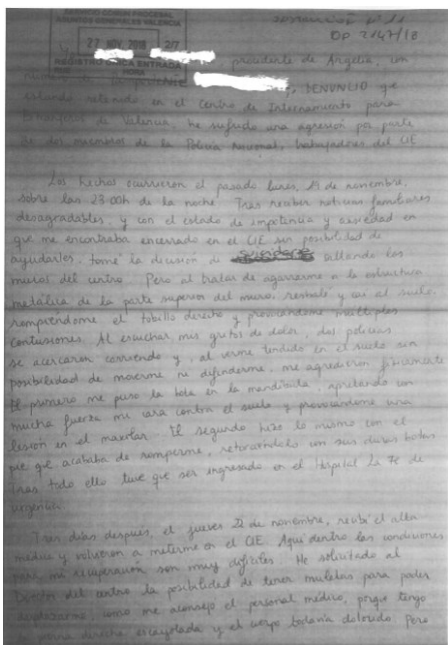 SERVICIO COMÚN PROCESAL
ASUNTOS GENERALES VALENCIA
27 NOV. 2018 2/7
REGISTRO ÚNICA ENTRADA
HORA
INSTRUCCIÓN Nº 11
DP 2147/18
Yo, procedente de Argelia, con
número de, DENUNCIO que
estando retenido en el Centro de Internamiento para
Extranjeros de Valencia, he sufrido una agresión por parte
de dos miembros de la Policía Nacional, trabajadores del CIE
Los hechos ocurrieron el pasado lunes, 19 de noviembre,
sobre las 23:00h de la noche. Tras recibir noticias familiares
desagradables, y con el estado de impotencia y ansiedad en
que me encontraba encerrado en el CIE sin posibilidad de
ayudarles, tomé la decisión de saltando los
muros del centro. Pero al tratar de agarrarme a la estructura
metálica de la parte superior del muro, resbalé y caí al suelo,
rompiéndome el tobillo derecho y provocándome múltiples
contusiones. Al escuchar mis gritos de dolor, dos policías
se acercaron corriendo y, al verme tendido en el suelo sin
posibilidad de moverme ni defenderme, me agredieron físicamente
El primero me puso la bota en la mandíbula, apretando con
mucha fuerza mi cara contra el suelo y provocándome una
lesión en el maxilar. El segundo hizo lo mismo con el
pie que acababa de romperme, retorciéndolo con sus duras botas
Tras todo ello tuve que ser ingresado en el Hospital La Fe de
urgencia.
Tres días después, el jueves 22 de noviembre, recibí el alta
médica y volvieron a meterme en el CIE. Aquí dentro las condiciones
para mi recuperación son muy difíciles. He solicitado al
Director del centro la posibilidad de tener muletas para poder
desplazarme, como me aconsejó el personal médico, porque tengo
la pierna derecha escayolada y el cuerpo todavía dolorido. Pero